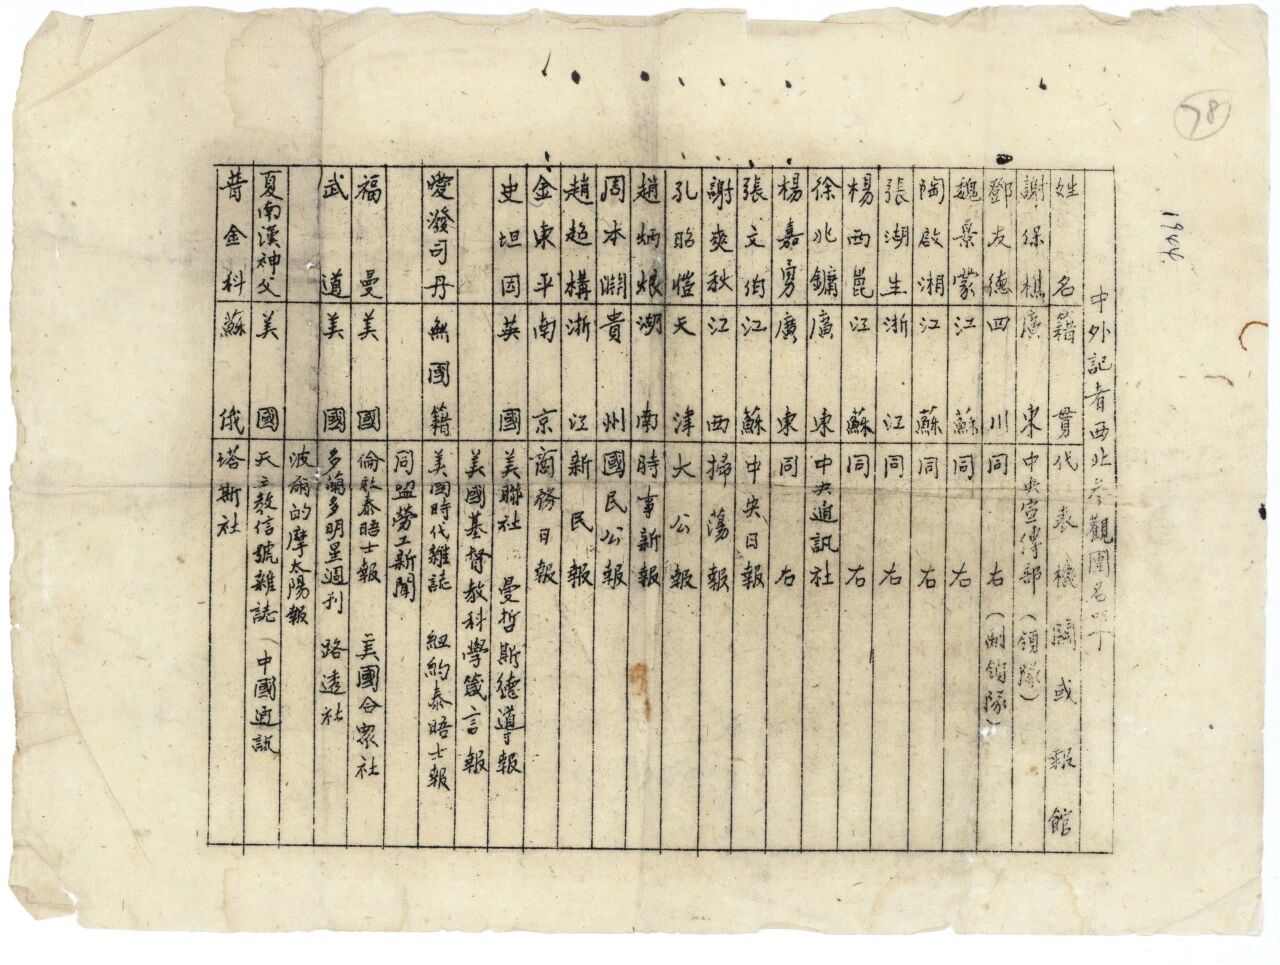 78
1944.
中外記者西北參觀團名單
姓名 籍貫 代表機關或報館
謝保樵 廣東 中央宣傳部（領隊）
鄧友德 四川 同右（副領隊）
魏景蒙 江蘇 同右
陶啟湘 江蘇 同右
張湖生 浙江 同右
楊西崑 江蘇 同右
徐兆鏞 廣東 中央通訊社
楊嘉勇 廣東 同右
張文伯 江蘇 中央日報
謝爽秋 江西 掃蕩報
孔昭愷 天津 大公報
趙炳烺 湖南 時事新報
周本淵 貴州 國民公報
趙超構 浙江 新民報
金東平 南京 商務日報
史坦因 英國 美聯社 曼哲斯德導報
美國基督教科學箴言報
愛潑司丹 無國籍 美國時代雜誌 紐約泰晤士報
同盟勞工新聞
福曼 美國 倫敦泰晤士報 美國合眾社
武道 美國 多蘭多明星週刊 路透社
波爾的摩太陽報
夏南漢神父 美國 天主教信號雜誌（中國通訊
普金科 蘇俄 塔斯社